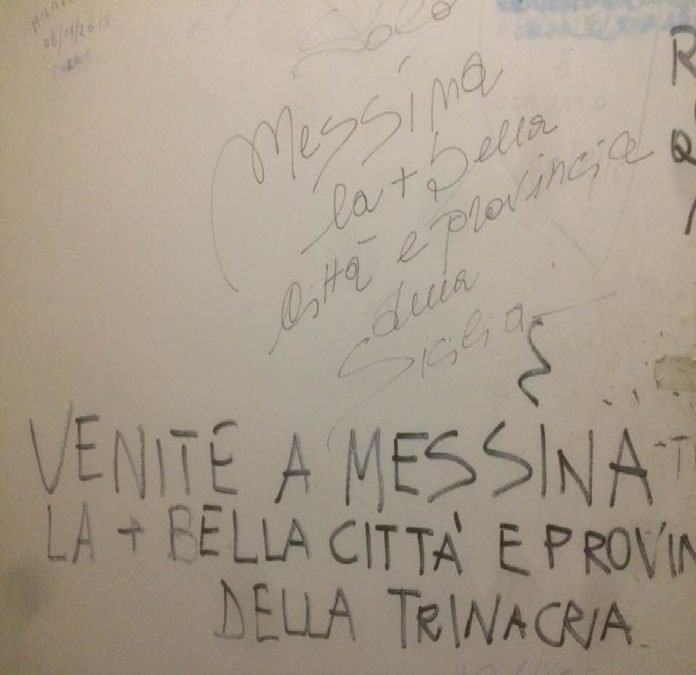 MILAZZO
08/01/2013
Solo
Messina
la + bella
città e provincia
della
Sicilia
R
Q
VENITE A MESSINA - T
LA + BELLA CITTÀ E PROVIN
DELLA TRINACRIA